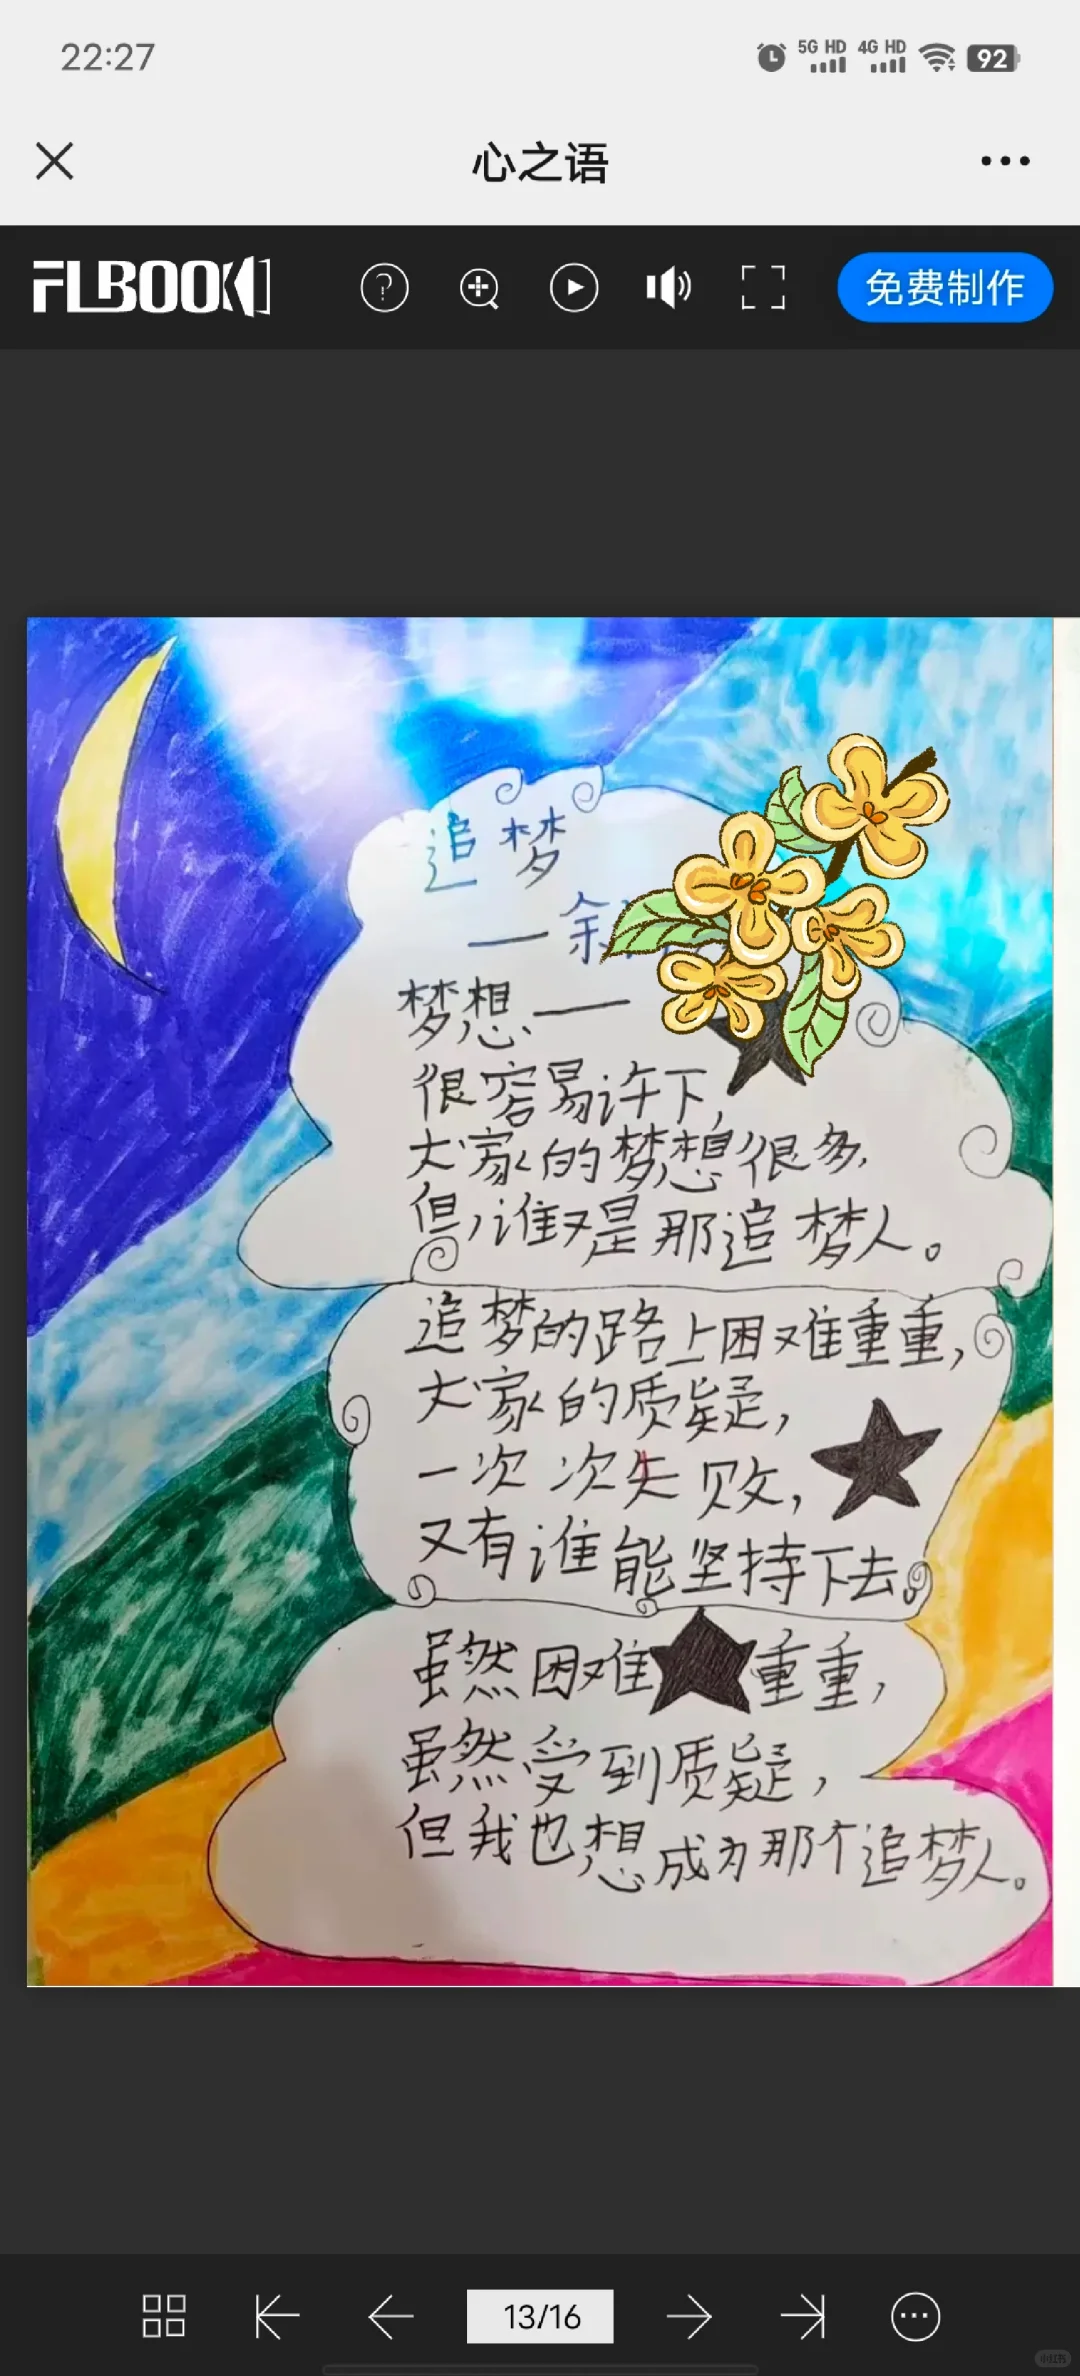 22:27
5G HD 4G HD 92
心之语
FLBOOK
免费制作
追梦
——余
梦想——
很容易许下,
大家的梦想很多,
但,谁又是那追梦人。
追梦的路上困难重重,
大家的质疑,
一次次失败,
又有谁能坚持下去。
虽然困难重重,
虽然受到质疑,
但我也想成为那个追梦人。
13/16
小红书